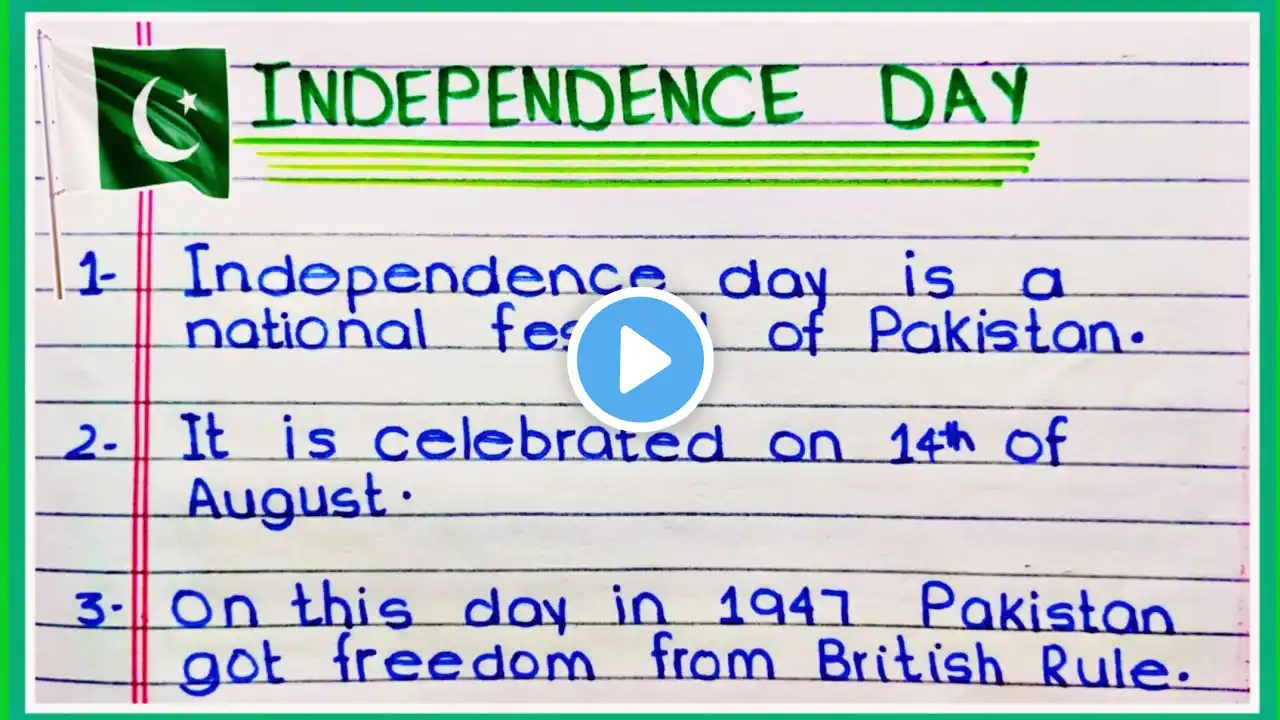 INDEPENDENCE DAY
1- Independence day is a
national of Pakistan.
2- It is celebrated on 14th of
August.
3- On this day in 1947 Pakistan
got freedom from British Rule.